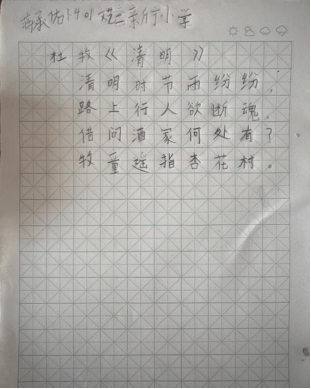 1401 新行小学
杜牧《清明》
清明时节雨纷纷,
路上行人欲断魂,
借问酒家何处有?
牧童遥指杏花村。